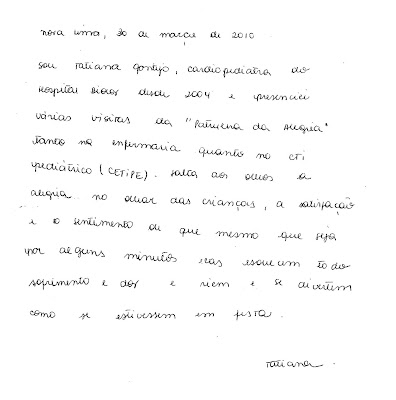 nova lima, 30 de março de 2010
sou Tatiana Gontijo, cardiopediatra do
Hospital Biocor desde 2004 e presenciei
várias visitas da "Patrulha da Alegria"
tanto na enfermaria quanto no CTI
pediátrico (CETIPE). salta aos olhos a
alegria no olhar das crianças, a satisfação
e o sentimento de que mesmo que seja
por alguns minutos elas esquecem todo
sofrimento e dor e riem e se divertem
como se estivessem em festa.
Tatiana.